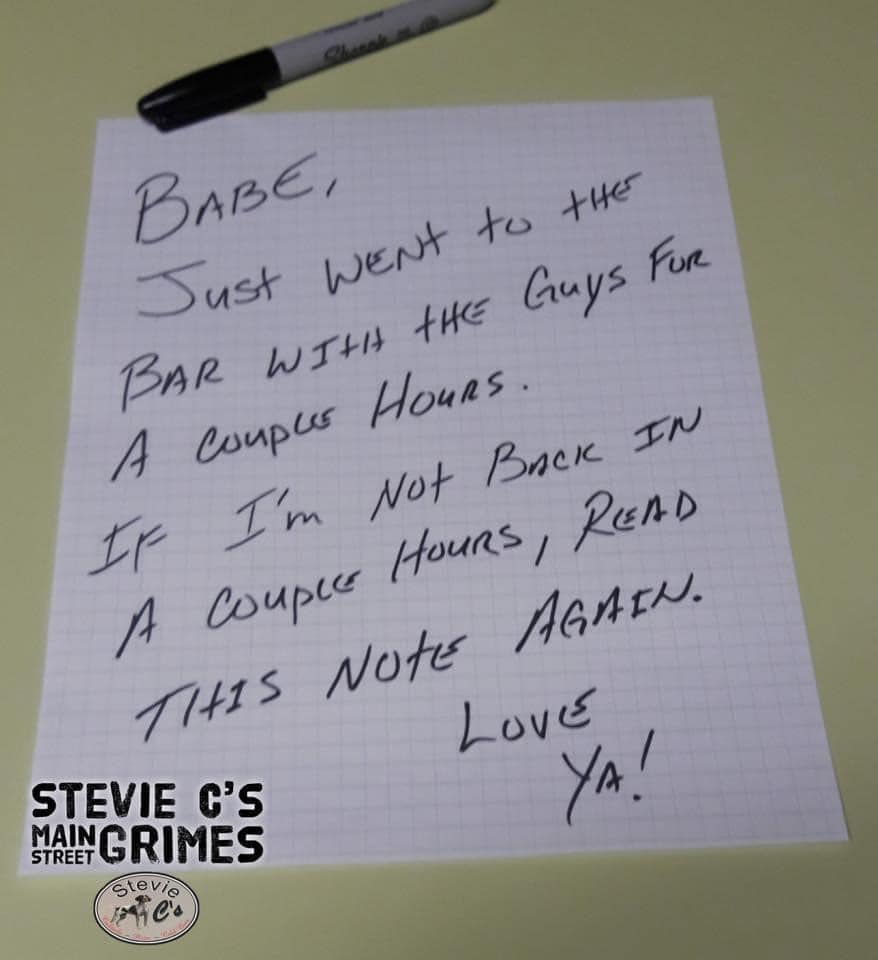 Sharpie
BABE,
JUST WENT to tHE
BAR WITH tHE GUYS FOR
A COUPLE HOURS.
IF I'm NOt BACK IN
A COUPLE HOURS, READ
THIS NOtE AGAIN.
LOVE
YA!
STEVIE C'S
MAIN STREET GRIMES
Stevie
C's